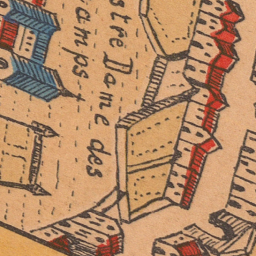 stre Dame des
amps